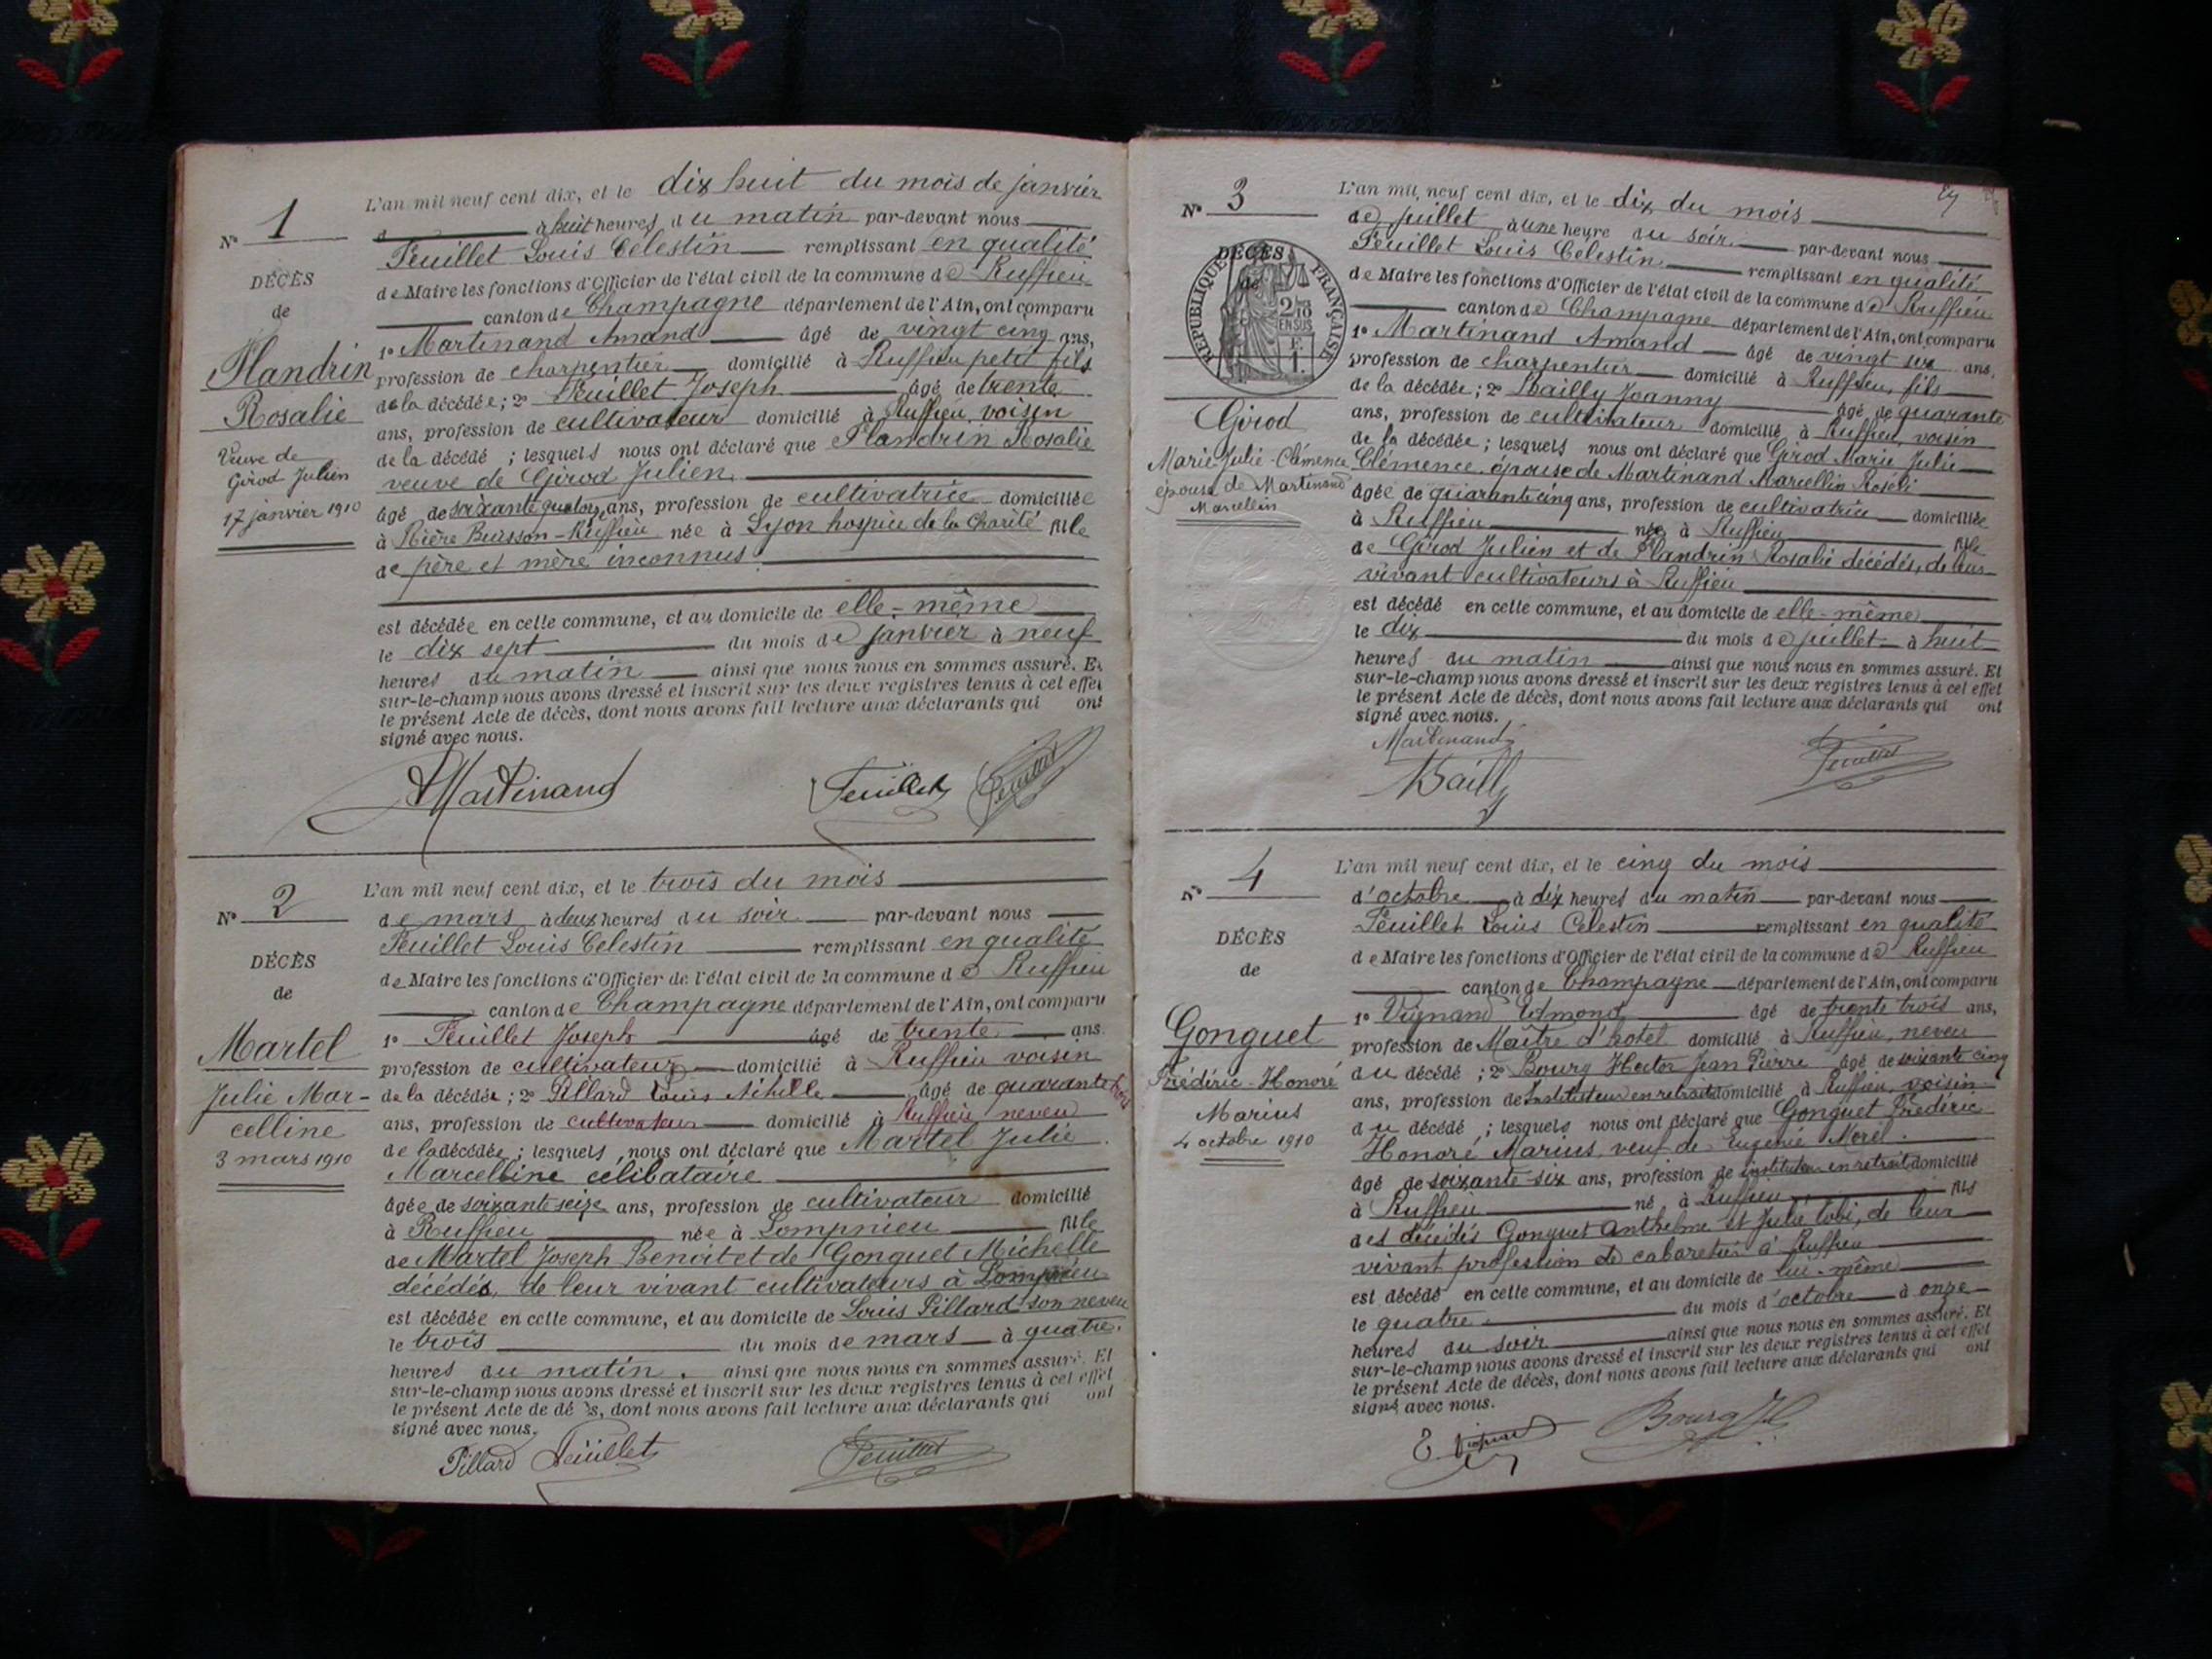 L'an mil neuf cent dix, et le dix huit du mois de janvier
N° 1
à huit heures du matin par-devant nous
Feuillet Louis Célestin remplissant en qualité
DÉCÈS
de Maire les fonctions d'Officier de l'état civil de la commune de Ruffieu
de
canton de Champagne département de l'Ain, ont comparu
1° Martinand Amand âgé de vingt cinq ans,
Flandrin
profession de charpentier domicilié à Ruffieu petit fils
de la décédée; 2° Feuillet Joseph âgé de trente
Rosalie
ans, profession de cultivateur domicilié à Ruffieu voisin
Veuve de
de la décédé ; lesquels nous ont déclaré que Flandrin Rosalie
Girod Julien
veuve de Girod Julien
17 janvier 1910
âgé de soixante quatorze ans, profession de cultivatrice domiciliée
à Buisson-Ruffieu née à Lyon hospice de la Charité fille
de père et mère inconnus
est décédée en cette commune, et au domicile de elle-même
le dix sept du mois de janvier à neuf
heures du matin ainsi que nous nous en sommes assuré. Et
sur-le-champ nous avons dressé et inscrit sur les deux registres tenus à cet effet
le présent Acte de décès, dont nous avons fait lecture aux déclarants qui ont
signé avec nous.
Martinand Feuillet Feuillet
L'an mil neuf cent dix, et le trois du mois
N° 2
de mars à deux heures du soir par-devant nous
Feuillet Louis Celestin remplissant en qualité
DÉCÈS
de Maire les fonctions d'Officier de l'état civil de la commune de Ruffieu
de
canton de Champagne département de l'Ain, ont comparu
1° Feuillet Joseph âgé de trente ans
Martel
profession de cultivateur domicilié à Ruffieu voisin
Julie Mar-
de la décédée; 2° Pillard Louis Achille âgé de quarante trois
celline
ans, profession de cultivateur domicilié à Ruffieu neveu
3 mars 1910
de la décédée; lesquels nous ont déclaré que Martel Julie
Marcelline célibataire
âgée de soixante seize ans, profession de cultivateur domicilié
à Ruffieu née à Lompnieu fille
de Martel Joseph Benoit et de Gonguet Michelle
décédés, de leur vivant cultivateurs à Lompnieu
est décédée en cette commune, et au domicile de Louis Pillard son neveu
le trois du mois de mars à quatre
heures du matin. ainsi que nous nous en sommes assuré. Et
sur-le-champ nous avons dressé et inscrit sur les deux registres tenus à cet effet
le présent Acte de décès, dont nous avons fait lecture aux déclarants qui ont
signé avec nous.
Pillard Feuillet Feuillet
L'an mil neuf cent dix, et le dix du mois
N° 3
de juillet à une heure du soir par-devant nous
Feuillet Louis Célestin remplissant en qualité
DÉCÈS
de
RÉPUBLIQUE FRANÇAISE
2/10 EN SUS
de Maire les fonctions d'Officier de l'état civil de la commune de Ruffieu
canton de Champagne département de l'Ain, ont comparu
1° Martinand Amand âgé de vingt six ans,
profession de charpentier domicilié à Ruffieu, fils
de la décédée; 2° Bailly Joanny âgé de quarante
Girod
ans, profession de cultivateur domicilié à Ruffieu, voisin
de la décédée; lesquels nous ont déclaré que Girod Marie Julie
Marie-Julie-Clémence
Clémence, épouse de Martinand Marcellin
épouse de Martinand
âgée de quarante cinq ans, profession de cultivatrice domiciliée
Marcellin
à Ruffieu née à Ruffieu fille
de Girod Julien et de Flandrin Rosalie décédés, de leur
vivant cultivateurs à Ruffieu
est décédé en cette commune, et au domicile de elle-même
le dix du mois de juillet à huit
heures du matin ainsi que nous nous en sommes assuré. Et
sur-le-champ nous avons dressé et inscrit sur les deux registres tenus à cet effet
le présent Acte de décès, dont nous avons fait lecture aux déclarants qui ont
signé avec nous.
Martinand
Bailly Feuillet
L'an mil neuf cent dix, et le cinq du mois
N° 4
d'octobre à dix heures du matin par-devant nous
Feuillet Louis Célestin remplissant en qualité
DÉCÈS
de Maire les fonctions d'Officier de l'état civil de la commune de Ruffieu
de
canton de Champagne département de l'Ain, ont comparu
1° Vignand Edmond âgé de trente trois ans,
Gonguet
profession de Maître d'hotel domicilié à Ruffieu, neveu
Frédéric-Honoré
du décédé ; 2° Bourg Hector Jean Pierre âgé de soixante cinq
Marius
ans, profession de Instituteur en retraite domicilié à Ruffieu, voisin
4 octobre 1910
du décédé ; lesquels nous ont déclaré que Gonguet Frédéric
Honoré Marius, veuf de Eugénie Morel
âgé de soixante-six ans, profession de instituteur en retrait domicilié
à Ruffieu né à Ruffieu fils
des décédés Gonguet Anthelme et Julie, de leur
vivant profession de cabaretier à Ruffieu
est décédé en cette commune, et au domicile de lui-même
le quatre du mois d'octobre à onze
heures du soir ainsi que nous nous en sommes assuré. Et
sur-le-champ nous avons dressé et inscrit sur les deux registres tenus à cet effet
le présent Acte de décès, dont nous avons fait lecture aux déclarants qui ont
signé avec nous.
Bourg H